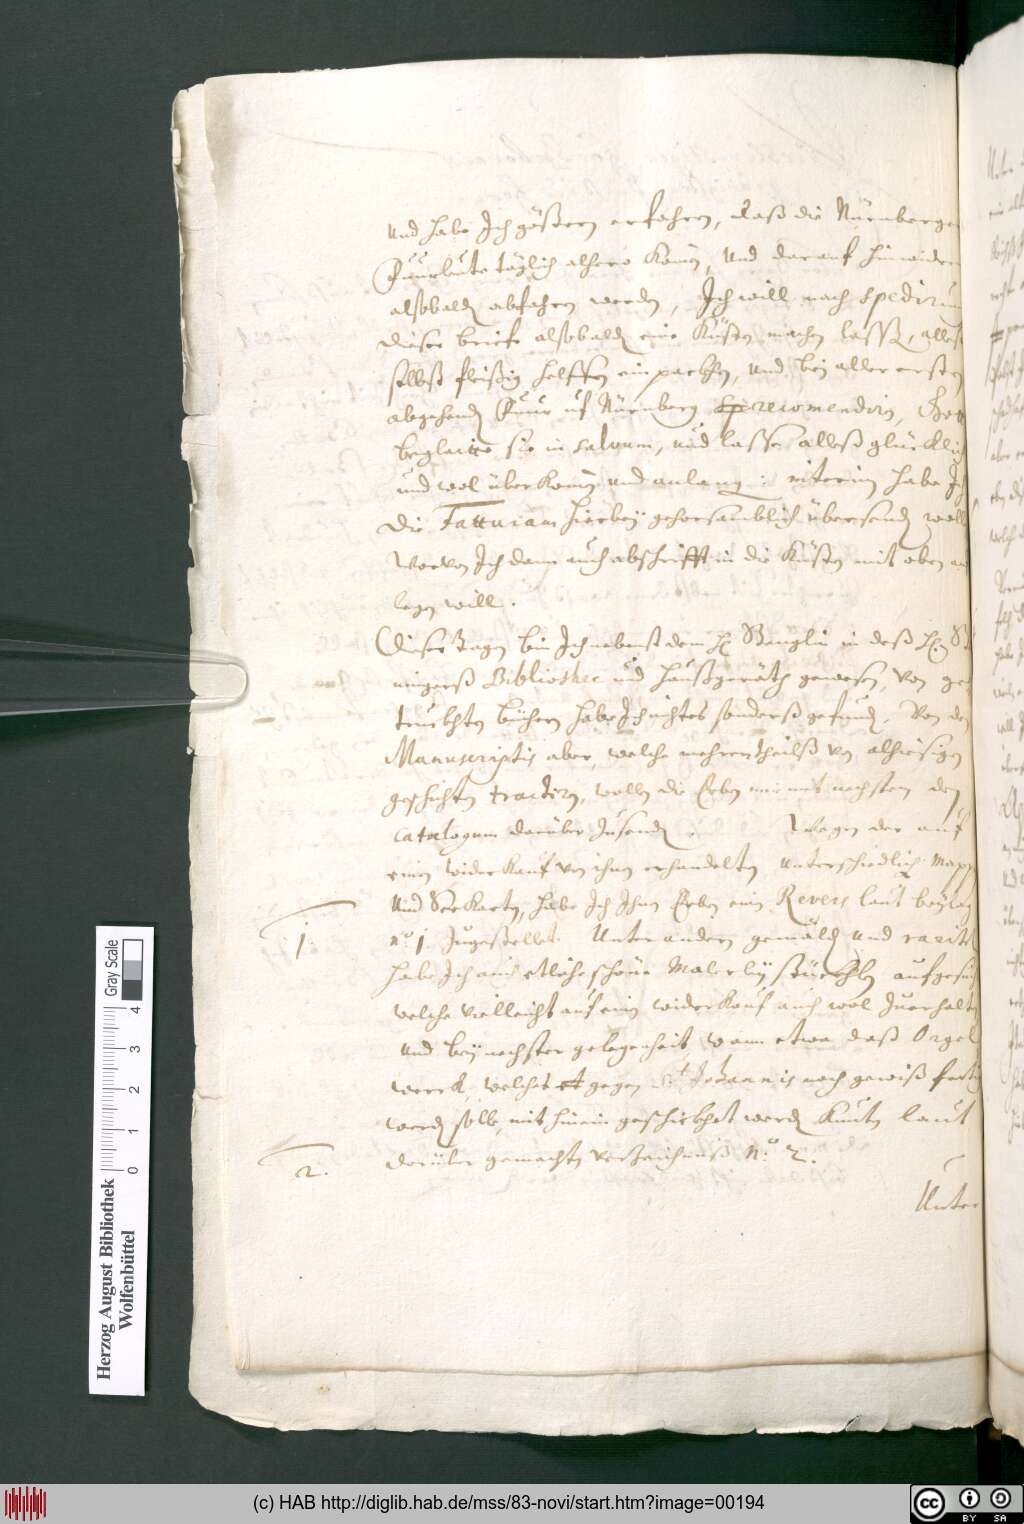 und habe Ich göstern erfahren, daß die Nürnberger
Fuurleute täglich alhero komen, und darauf hinwider
alsobalden abfahren werden, Ich will nach spedirung
dieser briefe alsobalden eine Küsten machen lassen, alles
selbst fleißig helffen einpackhen, und bey aller ersten
abgehenden Fuur uf Nürnberg recomendirn, Gott
beglaitte sie in salvum, und lasse alleß glücklich
und wol überkomen und anlangen: interim habe Ich
die Fatturam hierbey gehorsamblich übersenden wollen
wovon Ich dann auch abschrifft in die Küsten mit oben auf
legen will.
Dieser Tagen bin Ich nebenst dem H. Stenglin in deß H.
mingerß Bibliothec und Haußgeräth gewesen, von ge
truckhten büchern habe Ich nichtes sonderß gefunden, Von den
Manuscriptis aber, welche mehrentheilß von alhiesigen
geschichten tractirn, wollen die Erben mir mit nechstem den
catalogum darüber zusenden. Wegen der auf
einen widerkauf von ihm erhandelten unterschiedlichen Mappen
und Seekarten, habe Ich Ihen Erben einen Revers laut beylag
1.
n.o 1. zugestellet. Unter andern gemälden und raritet
habe Ich auch etliche schöne Malerey stückhlen aufgesucht
welche vielleicht auf einen widerkauf auch wol zuerhalten
und bey nechster gelegenheit, wann etwa daß Orgel
werck, welches gegen St. Johannis noch gewiß fertig
werden solle, mit hinein geschickhet werden kunten laut
2.
darüber gemachten verzeichniß N.o 2.
Unter
Herzog August Bibliothek
Wolfenbüttel
Gray Scale
0 1 2 3 4
(c) HAB http://diglib.hab.de/mss/83-novi/start.htm?image=00194
cc BY SA